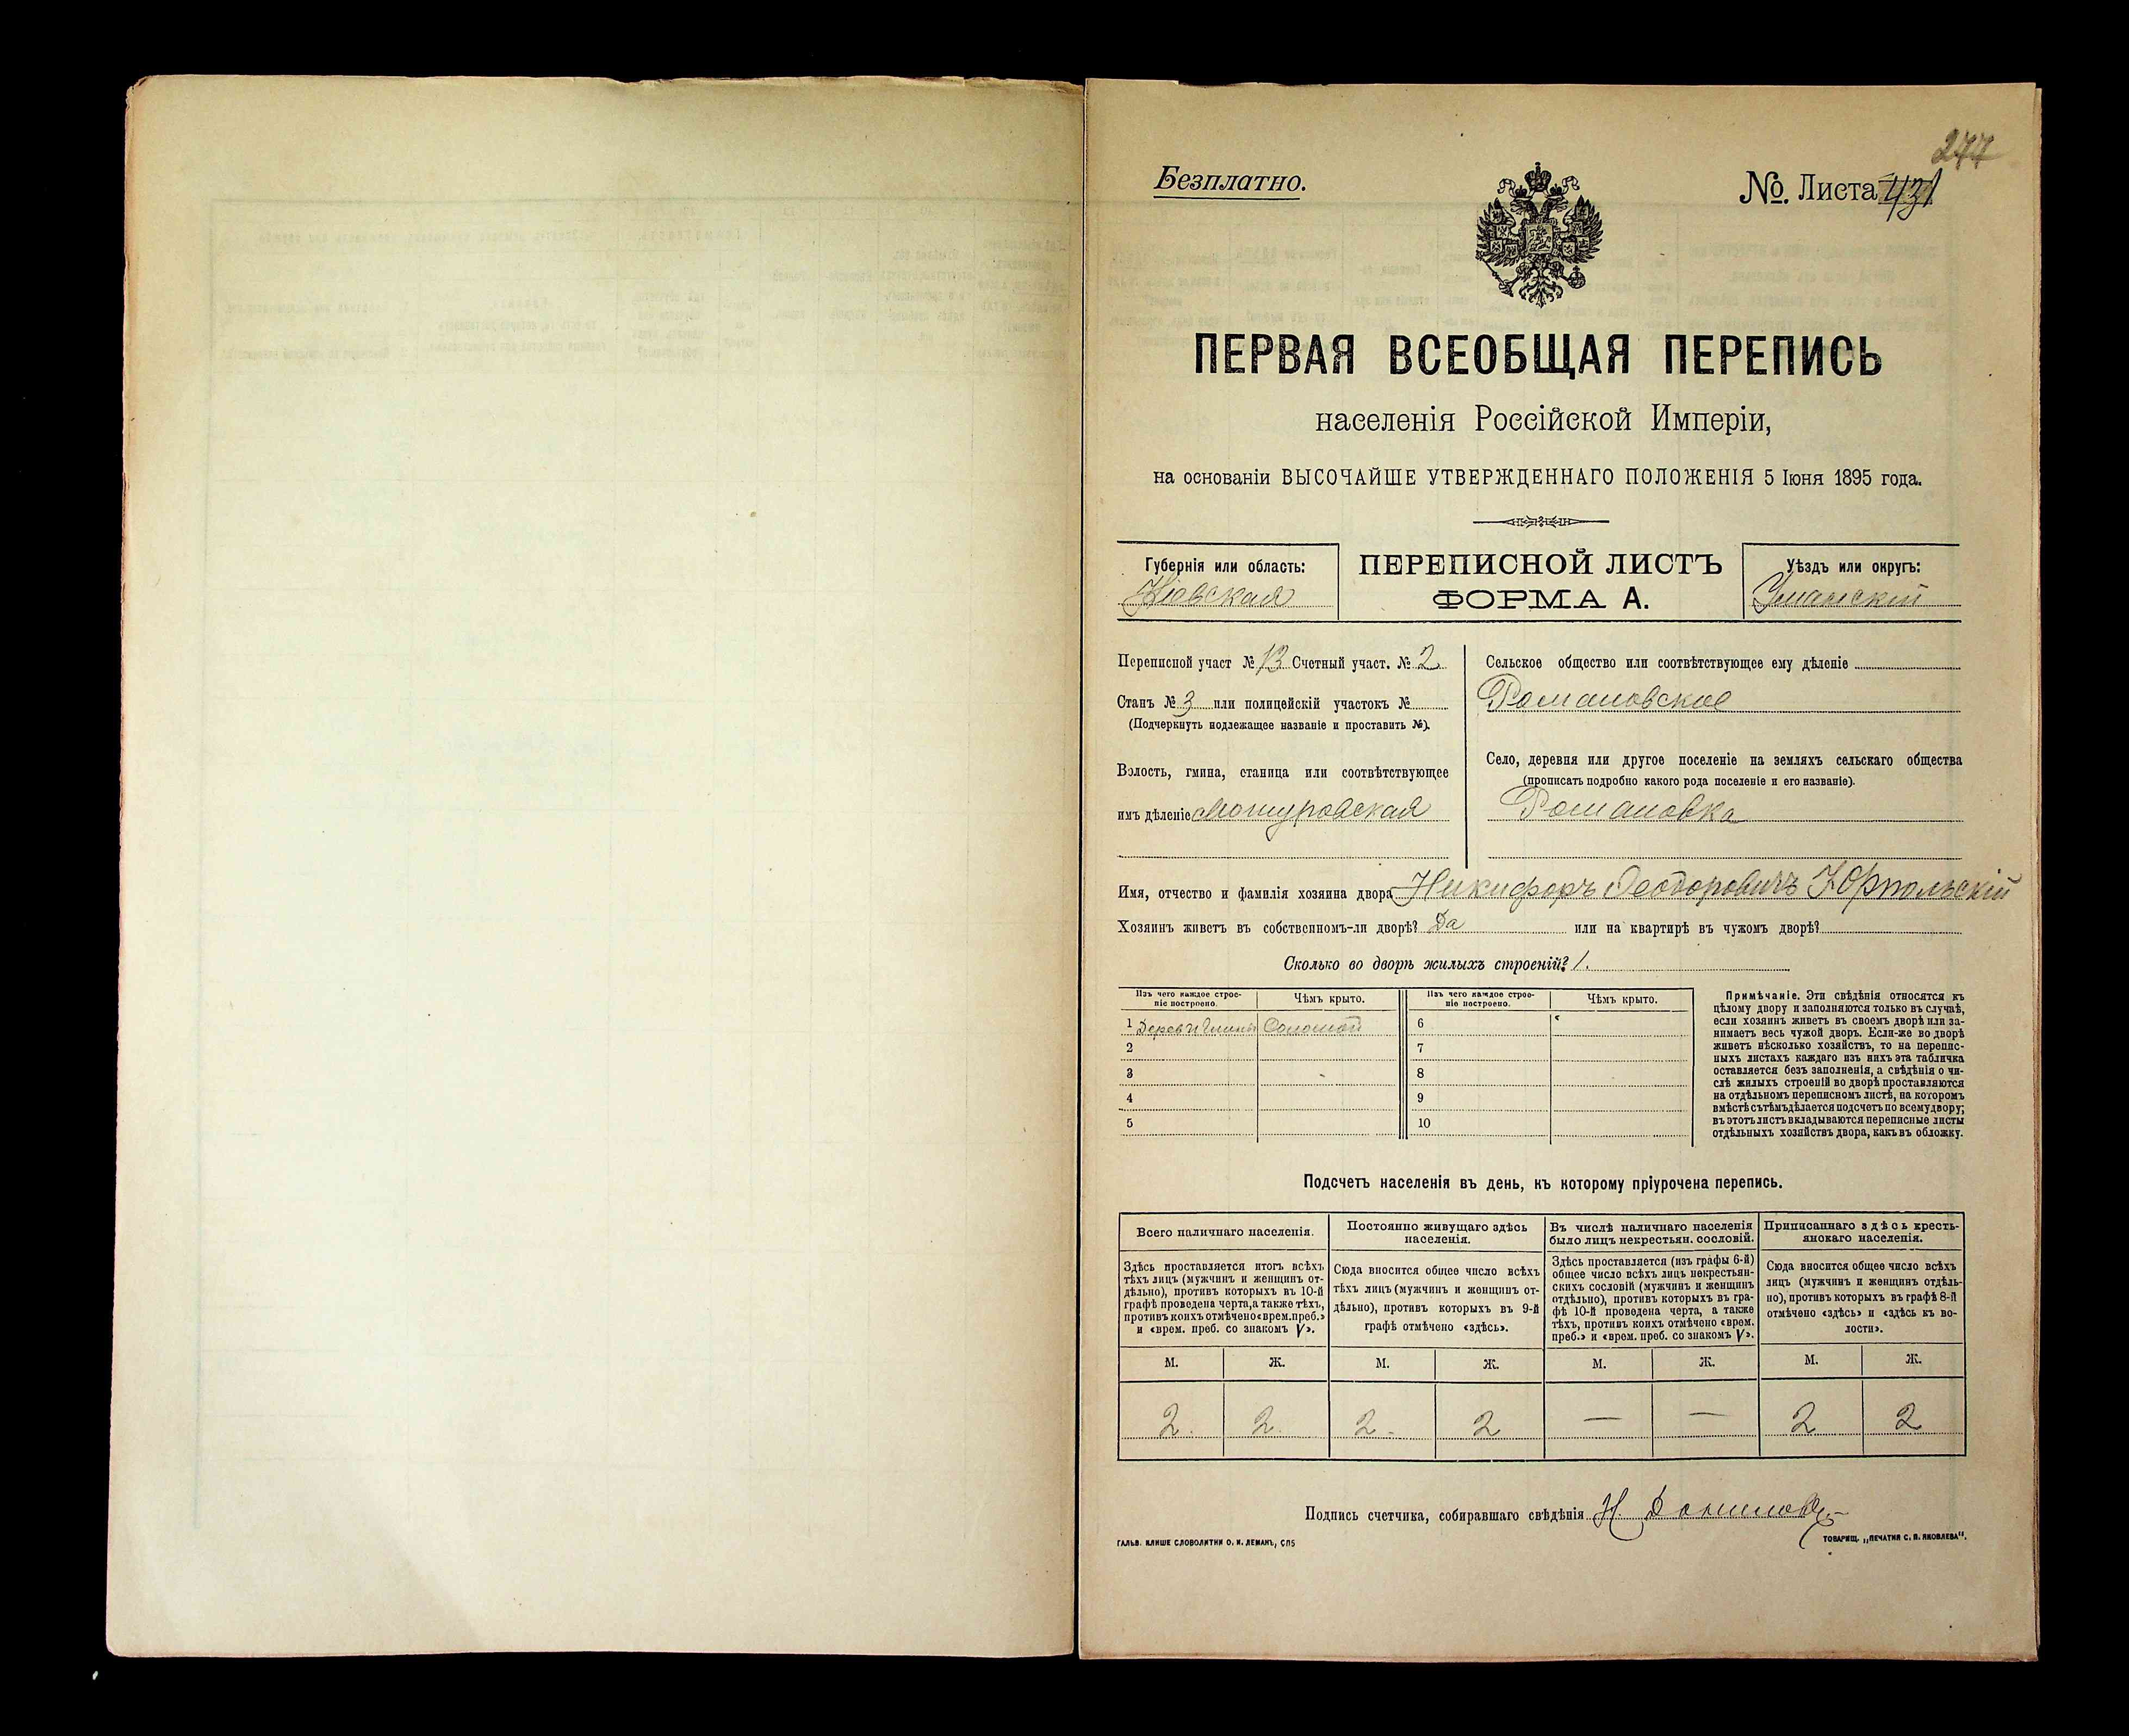 277
Безплатно.
№. Листа 431
ПЕРВАЯ ВСЕОБЩАЯ ПЕРЕПИСЬ
населенія Россійской Имперіи,
на основаніи ВЫСОЧАЙШЕ УТВЕРЖДЕННАГО ПОЛОЖЕНІЯ 5 Іюня 1895 года.
Губернія или область:
Кіевская
ПЕРЕПИСНОЙ ЛИСТЪ
ФОРМА А.
Уѣздъ или округъ:
Уманскій
Переписной участ № 13 Счетный участ. № 2
Станъ № 3 или полицейскій участокъ №
(Подчеркнуть подлежащее названіе и проставить №).
Волость, гмина, станица или соотвѣтствующее
имъ дѣленіе Мошуровская
Сельское общество или соотвѣтствующее ему дѣленіе
Романовское
Село, деревня или другое поселеніе на земляхъ сельскаго общества
(прописать подробно какого рода поселеніе и его названіе).
Романовка
Имя, отчество и фамилія хозяина двора Никифоръ Ѳеодоровичъ
Хозяинъ живетъ въ собственномъ-ли дворѣ? Да или на квартирѣ въ чужомъ дворѣ?
Сколько во дворѣ жилыхъ строеній? 1.
Изъ чего каждое строе-
ніе построено.
Чѣмъ крыто.
Изъ чего каждое строе-
ніе построено.
Чѣмъ крыто.
1 Соломой 6
2 7
3 8
4 9
5 10
Примѣчаніе. Эти свѣдѣнія относятся къ
цѣлому двору и заполняются только въ случаѣ,
если хозяинъ живетъ въ своемъ дворѣ или за-
нимаетъ весь чужой дворъ. Если-же во дворѣ
живетъ нѣсколько хозяйствъ, то на перепис-
ныхъ листахъ каждаго изъ нихъ эта табличка
оставляется безъ заполненія, а свѣдѣнія о чи-
слѣ жилыхъ строеній во дворѣ проставляются
на отдѣльномъ переписномъ листѣ, на которомъ
вмѣстѣ съ тѣмъ дѣлается подсчетъ по всему двору;
въ этотъ листъ вкладываются переписные листы
отдѣльныхъ хозяйствъ двора, какъ въ обложку.
Подсчетъ населенія въ день, къ которому пріурочена перепись.
Всего наличнаго населенія.
Здѣсь проставляется итогъ всѣхъ
тѣхъ лицъ (мужчинъ и женщинъ от-
дѣльно), противъ которыхъ въ 10-й
графѣ проведена черта, а также тѣхъ,
противъ коихъ отмѣчено «врем. преб.»
и «врем. преб. со знакомъ V».
Постоянно живущаго здѣсь
населенія.
Сюда вносится общее число всѣхъ
тѣхъ лицъ (мужчинъ и женщинъ от-
дѣльно), противъ которыхъ въ 9-й
графѣ отмѣчено «здѣсь».
Въ числѣ наличнаго населенія
было лицъ некрестьян. сословій.
Здѣсь проставляется (изъ графы 6-й)
общее число всѣхъ лицъ некрестьян-
скихъ сословій (мужчинъ и женщинъ
отдѣльно), противъ которыхъ въ гра-
фѣ 10-й проведена черта, а также
тѣхъ, противъ коихъ отмѣчено «врем.
преб.» и «врем. преб. со знакомъ V».
Приписаннаго здѣсь кресть-
янскаго населенія.
Сюда вносится общее число всѣхъ
лицъ (мужчинъ и женщинъ отдѣль-
но), противъ которыхъ въ графѣ 8-й
отмѣчено «здѣсь» и «здѣсь къ во-
лости».
М. Ж. М. Ж. М. Ж. М. Ж.
2. 2. 2. 2 — — 2 2
Подпись счетчика, собиравшаго свѣдѣнія Н.
ГАЛЬВ. КЛИШЕ СЛОВОЛИТНИ О. И. ЛЕМАНЪ, СПБ
ТОВАРИЩ. „ПЕЧАТНЯ С. П. ЯКОВЛЕВА“.